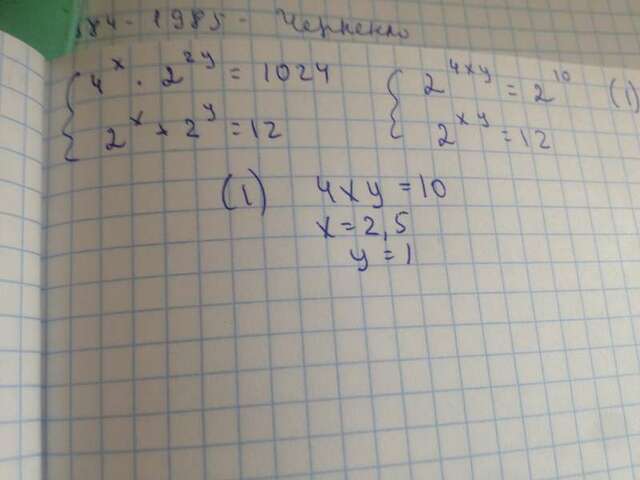 84 - 1985 -
{ 4^x · 2^{2y} = 1024
2^x + 2^y = 12
{ 2^{4xy} = 2^{10} (1)
2^{xy} = 12
(1) 4xy = 10
x = 2,5
y = 1